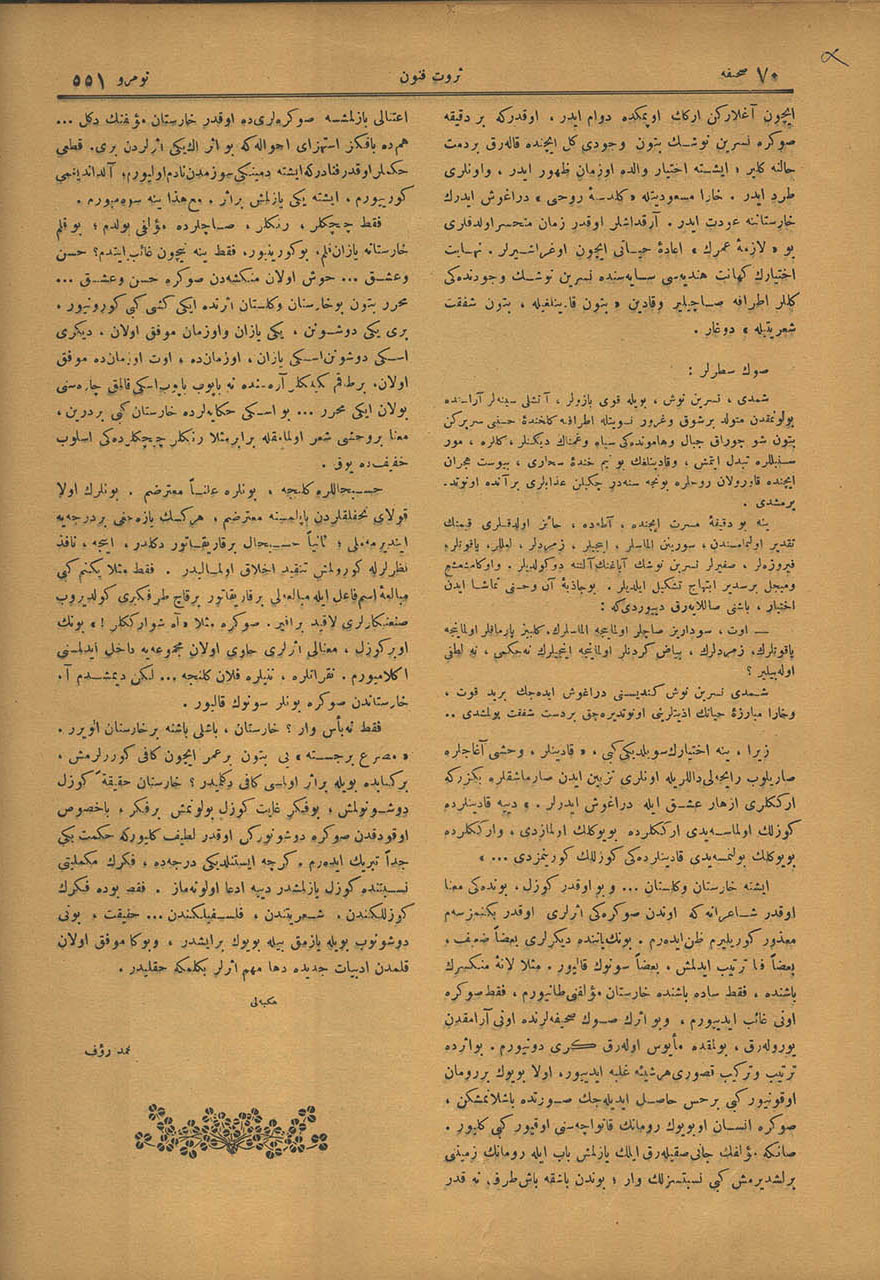 ٧٠ صحیفه
ثروت فنون
نومرو ٥٥١
ایچون آغلارکن ارکك اوپمکده دوام ایدر ، اوقدرکه بر دقیقه
صوکره نسرین نوشك بتون وجودی کل ایچنده قاله‌رق بردمت
حالنه کلیر ؛ ایشته اختیار والده اوزمان ظهور ایدر ، واونلری
طرد ایدر . خارا مسعودیتله « کلدستهٔ روحی » دراغوش ایدرك
خارستاننه عودت ایدر . آرقداشلر اوقدر زمان متحسر اولدقلری
بو « لازمهٔ عمرك » اعادهٔ حیاتی ایچون اوغراشیرلر . نهایت
اختیارك کهانت هندیه‌سی سایه‌سنده نسرین نوشك وجودنده‌کی
کللر اطرافه صاچیلیر وقادین « بتون قادینلغیله ، بتون شفقت
شعریتیله » دوغار .
صوك سطرلر :
شمدی ، نسرین نوش ، بویله قوی بازولر ، آتشلی سینه‌لر آراسنده
بولونمقدن متولد برشوق وغرور نسویتله اطرافه کلخندهٔ حسنی سررکن
بتون شو چوراق جبال وهامونده‌کی سیاه وغمناك دیکنلر ، کللره ، مور
سنبللره تبدل ایتمش ، وقادینلغك بو نیم خندهٔ سحاری ، یبوست هجران
ایچنده قاورولان روحلره بونجه سنه‌در چکیلن عذابلری برآنده اونوتد-
یرمشدی .
ینه بو دقیقهٔ مسرت ایچنده ، آطه‌ده ، حائز اولدقلری قیمتك
تقدیر اولنمامسندن ، سورینن الماسلر ، اینجیلر ، زمردلر ، لعللر ، یاقوتلر ،
فیروزه‌لر ، صفیرلر نسرین نوشك آیاغنك آلتنه دوکولدیلر . واوکا مشعشع
ومبجل برسدیر ابتهاج تشکیل ایلدیلر . بوجاذبهٔ آن وحسنی تماشا ایدن
اختیار ، باشنی صاللایه‌رق دییوردی‌که :
— اوت ، سودارین صاچلر اولماینجه الماسلرك ، کلبیز پارماقلر اولماینجه
یاقوتلرك ، زمردلرك ، بیاض کردنلر اولماینجه اینجیلرك نه حکمی ، نه لطفی
اوله‌بیلیر ؟
شمدی نسرین نوش کندیسنی دراغوش ایده‌جك برید قوت ،
وخارا مبارزهٔ حیاتك اذیتلرینی اونوتدیره‌جق بردست شفقت بولمشدی ..
زیرا ، ینه اختیارك سویلدیکی کبی ، « قادینلر ، وحشی آغاجلره
صاریلوب رایحه‌لی داللریله اونلری تزیین ایدن صارماشقلره بکزرکه
ارککلری ازهار عشق ایله دراغوش ایدرلر . » دییه قادینلرده
کوزللك اولماسه‌یدی ارککلرده بویوکلك اولمازدی ، وارککلرده
بویوکلك بولنمسه‌یدی قادینلرده‌کی کوزللك کورینمزدی ... »
ایشته خارستان وکلستان ... وبو اوقدر کوزل ، بونده‌کی معنا
اوقدر شاعرانه که اوندن صوکره‌کی اثرلری اوقدر بکنمزسه‌م
معذور کوریلیرم ظن ایده‌رم . بونك یاننده دیکرلری بعضاً ضعیف ،
بعضاً فنا ترتیب ایدلمش ، بعضاً سونوك قالیور . مثلا لانهٔ منکسرك
باشنده ، فقط ساده باشنده خارستان مؤلفنی طانیورم ، فقط صوکره
اونی غائب ایدییورم ، وبو اثرك صوك صحیفه‌لرنده اونی آرامقدن
یوروله‌رق ، بولمقده مأیوس اوله‌رق کری دونیورم . بو اثرده
ترتیب وترکیب قصوری هرشیئه غلبه ایدییور ، اولا بویوك بررومان
اوقونیور کبی برحس حاصل ایدیله‌جك صورتده باشلانمشکن ،
صوکره انسان اوبویوك رومانك قانواجه‌سنی اوقیور کبی کلیور .
صانکه مؤلفك جانی صیقیله‌رق ایلك یازلمش باب ایله رومانك زمینی
برلشدیرمش کبی نسبتسزلك وار ؛ بوندن باشقه باش طرفی نه قدر
اعتنالی یازلمشسه صوکره‌لری‌ده اوقدر خارستان مؤلفنك دکل ...
هم‌ده باقکز استهزای احواله‌که بو اثر اك یکی اثرلردن بری . قطعی
حکملر اوقدر فنادرکه ایشته دمینکی سوزمدن نادم اولیورم ؛ آلداندیغمی
کورییورم . ایشته یکی یازلمش براثر ، مع هذا ینه سوه‌میورم .
فقط چیچکلر ، رنکلر ، صاچلرده مؤلفی بولدم ؛ بو قلم
خارستانه یازان قلم ، بو کورینیور . فقط ینه نیچون غائب ایتدم؟ حسن
وعشق ... خوش اولان منکشه‌دن صوکره حسن وعشق ...
محرر بتون بو خارستان وکلستان اثرنده ایکی کشی کبی کورونیور .
بری یکی دوشونن ، یکی یازان واوزمان موفق اولان ، دیکری
اسکی دوشونن اسکی یازان ، اوزمان‌ده ، اوت اوزمان‌ده موفق
اولان . برطقم کبکلر آره‌سنده نه یاپوب یاپوب اسکی قالمق چاره‌سنی
بولان ایکی محرر ... بو اسکی حکایه‌لرده خارستان کبی بردرین ،
معنا بروحشی شعر اولمامقله برابر مثلا رنکلر چیچکلرده‌کی اسلوب
خفیف‌ده یوق .
حسبحاللره کلنجه ، بونلره علناً معترضم . بونلرك اولا
قولای تحفلقلردن یاپلمسنه معترضم ، هرکسك یازه‌جغی بردرجه‌یه
ایندیرمه‌ملی ؛ ثانیاً حسبحال برقاریقاتور دکلدر ، اینجه ، نافذ
نظرلرله کورولمش تنقید اخلاق اولمالیدر . فقط مثلا یکنم کبی
مبالغهٔ اسم فاعل ایله مبالغه‌لی برقاریقاتور برقاج طرفکزی کولدیروب
صنعتکارلری لاقید براقیر . صوکره مثلا «آه شو ارککلر !» بونك
اوبرکوزل ، معنالی اثرلری حاوی اولان مجموعه‌یه داخل ایدلمسنی
اکلامیورم . نقراتلره ، نثیلره فلان کلنجه ... لکن دیمشدم آ،
خارستاندن صوکره بونلر سونوك قالیور .
فقط نه بأس وار ؟ خارستان ، باشلی باشنه برخارستان الویرر .
« مصرع برجسته » یی بتون برعمر ایچون کافی کوررلرمش ،
برکتابده بویله براثر اولسی کافی دکلمیدر ؟ خارستان حقیقةً کوزل
دوشونولمش ، بوفکر غایت کوزل بولونمش برفکر ، باخصوص
اوقودقدن صوکره دوشونورکن اوقدر لطیف کلیورکه حکمت بکی
جداً تبریك ایده‌رم . کرچه ایستنلدیکی درجه‌ده ، فکرك مکملیتی
نسبتنده کوزل یازلمشدر دییه ادعا اولونه‌ماز . فقط بوده فکرك
کوزللکندن ، شعریتندن ، فلسفیلکندن ... حقیقت ، بونی
دوشونوب بویله یازمق بیله بویوك برایشدر ، وبوکا موفق اولان
قلمدن ادبیات جدیده دها مهم اثرلر بکلمکه حقلیدر .
هکبه‌لی
محمد رؤف